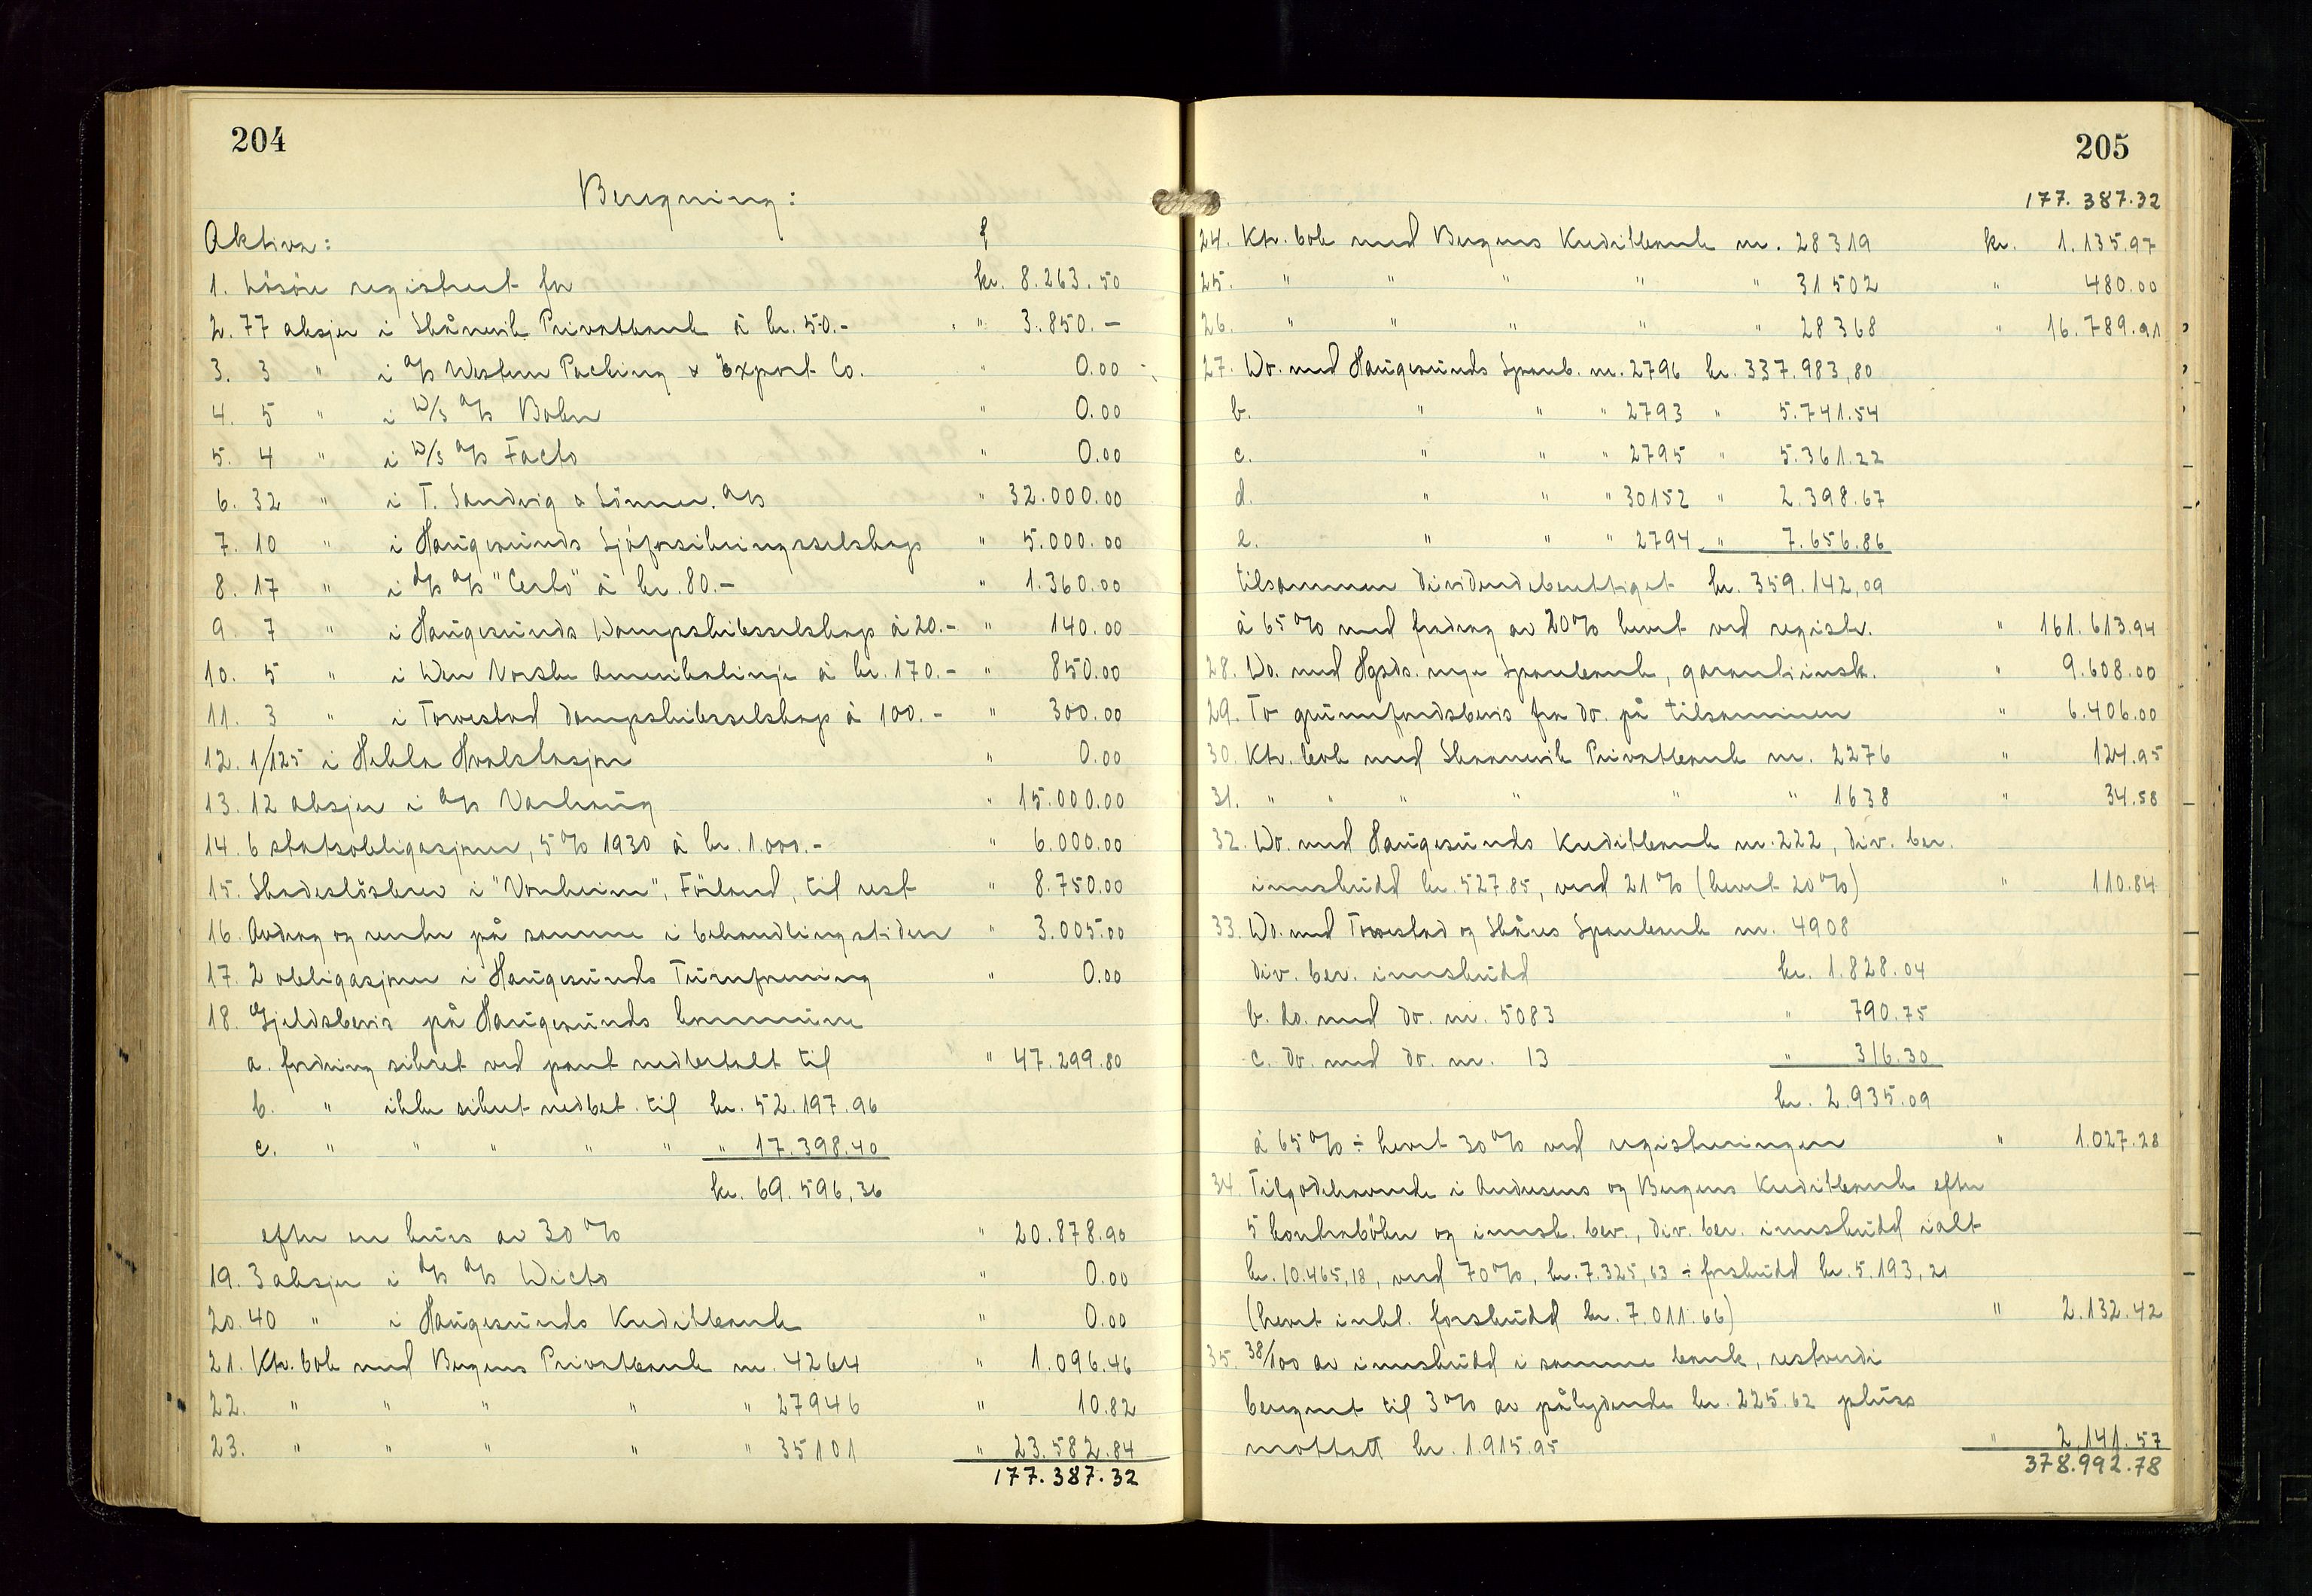 204
Beregning:
Aktiva:
1. Lösöre registrert for kr. 8.263.50
2. 77 aksjer i Skånevik Privatbank à kr. 50.- " 3.850.—
3. 3 " i A/S Western Packing & Export Co. " 0.00
4. 5 " i D/S A/S Bokn " 0.00
5. 4 " i D/S A/S Facto " 0.00
6. 32 " i T. Sandvig & Sönner A/S " 32.000.00
7. 10 " i Haugesunds Sjöforsikringsselskap " 5.000.00
8. 17 " i d/s A/S "Certo" à kr. 80.- " 1.360.00
9. 7 " i Haugesunds Dampskibsselskap à 20.- " 140.00
10. 5 " i Den Norske Amerikalinje à kr. 170.- " 850.00
11. 3 " i Torvestad Dampskibsselskap à 100.- " 300.00
12. 1/125 i Hekla Hvalstasjon " 0.00
13. 12 aksjer i A/S Varhaug " 15.000.00
14. 6 statsobligasjoner, 5% 1930 à kr. 1.000.- " 6.000.00
15. Skadeslösbrev i "Vonheim", Förland, til rest " 8.750.00
16. Avdrag og renter på samme i behandlingstiden " 3.005.00
17. 2 obligasjoner i Haugesunds Turnforening " 0.00
18. Gjeldsbevis på Haugesunds kommune
a. fordring sikret ved pant nedbetalt til " 47.299.80
b. " ikke sikret nedbet. til kr. 52.197.96
c. " " " " " " 17.398.40
kr. 69.596,36
efter en kurs av 30% " 20.878.90
19. 3 aksjer i d/s A/S Dicto " 0.00
20. 40 " i Haugesunds Kreditbank " 0.00
21. Ktr. bok med Bergens Privatbank nr. 4264 " 1.096.46
22. " " " " " 27946 " 10.82
23. " " " " " 35101 " 23.582.84
177.387.32
205
177.387.32
24. Ktr. bok med Bergens Kreditbank nr. 28319 kr. 1.135.97
25. " " " " " 31502 " 480.00
26. " " " " " 28368 " 16.789.91
27. Do. med Haugesunds Spareb. nr. 2796 kr. 337.983,80
b. " " " 2793 " 5.741.54
c. " " " 2795 " 5.361.22
d. " " " 30152 " 2.398.67
e. " " " 2794 " 7.656.86
tilsammen dividendeberettiget kr. 359.142,09
à 65% med fradrag av 20% hevet ved registr. " 161.613.94
28. Do. med Hgsds. nye Sparebank, garantiinsk. " 9.608.00
29. To grunnfondsbevis fra do. på tilsammen " 6.406.00
30. Ktr. bok med Skaanevik Privatbank nr. 2276 " 124.95
31. " " " " " " 1638 " 34.58
32. Do. med Haugesunds Kreditbank nr. 222, div. ber.
innskudd kr. 527.85, verd 21% (hevet 20%) " 110.84
33. Do. med Torvestad og Skåres Sparebank nr. 4908
div. ber. innskudd kr. 1.828.04
b. do. med do. nr. 5083 " 790.75
c. do. med do. nr. 13 " 316.30
kr. 2.935.09
à 65% ÷ hevet 30% ved registreringen " 1.027.28
34. Tilgodehavende i Andresens og Bergens Kreditbank efter
5 kontrabøker og innsk. bev., div. ber. innskudd ialt
kr. 10.465,18, verd 70%, kr. 7.325,63 ÷ forskudd kr. 5.193,21
(hevet inkl. forskudd kr. 7.011.66) " 2.132.42
35. 38/100 av innskudd i samme bank, restverdi
beregnet til 3% av pålydende kr. 225.62 pluss
mottatt kr. 1.915.95 " 2.141.57
378.992.78